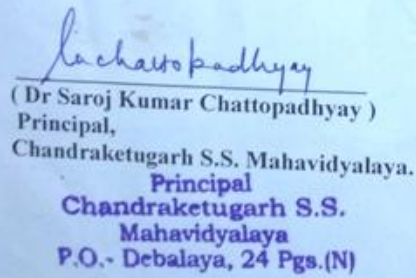 ( Dr Saroj Kumar Chattopadhyay )
Principal,
Chandraketugarh S.S. Mahavidyalaya.
Principal
Chandraketugarh S.S.
Mahavidyalaya
P.O.- Debalaya, 24 Pgs.(N)